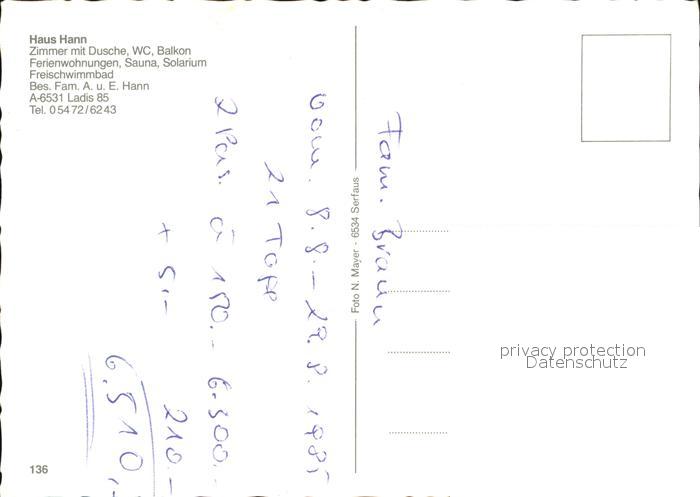 Haus Hann
Zimmer mit Dusche, WC, Balkon
Ferienwohnungen, Sauna, Solarium
Freischwimmbad
Bes. Fam. A. u. E. Hann
A-6531 Ladis 85
Tel. 0 54 72 / 62 43
Foto N. Mayer - 6534 Serfaus
Fam. Braun
vom. 8.8. – 29.8. 1985
21 Tage
2 Pers. à 150.- 6.300.-
+ 5,- 210.-
6.510,-
136
privacy protection
Datenschutz